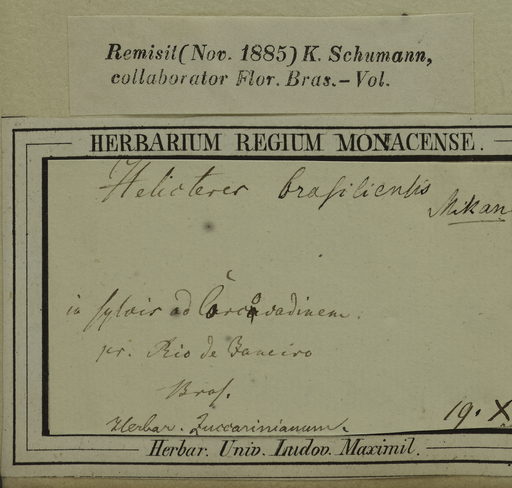 Remisit (Nov. 1885) K. Schumann,
collaborator Flor. Bras. – Vol.
HERBARIUM REGIUM MONACENSE.
Helicteres brasiliensis
Mikan
in sylvis ad Corcovadinem.
pr. Rio de Janeiro
Bras.
Herbar. Zuccarinianum.
19. X
Herbar. Univ. Ludov. Maximil.